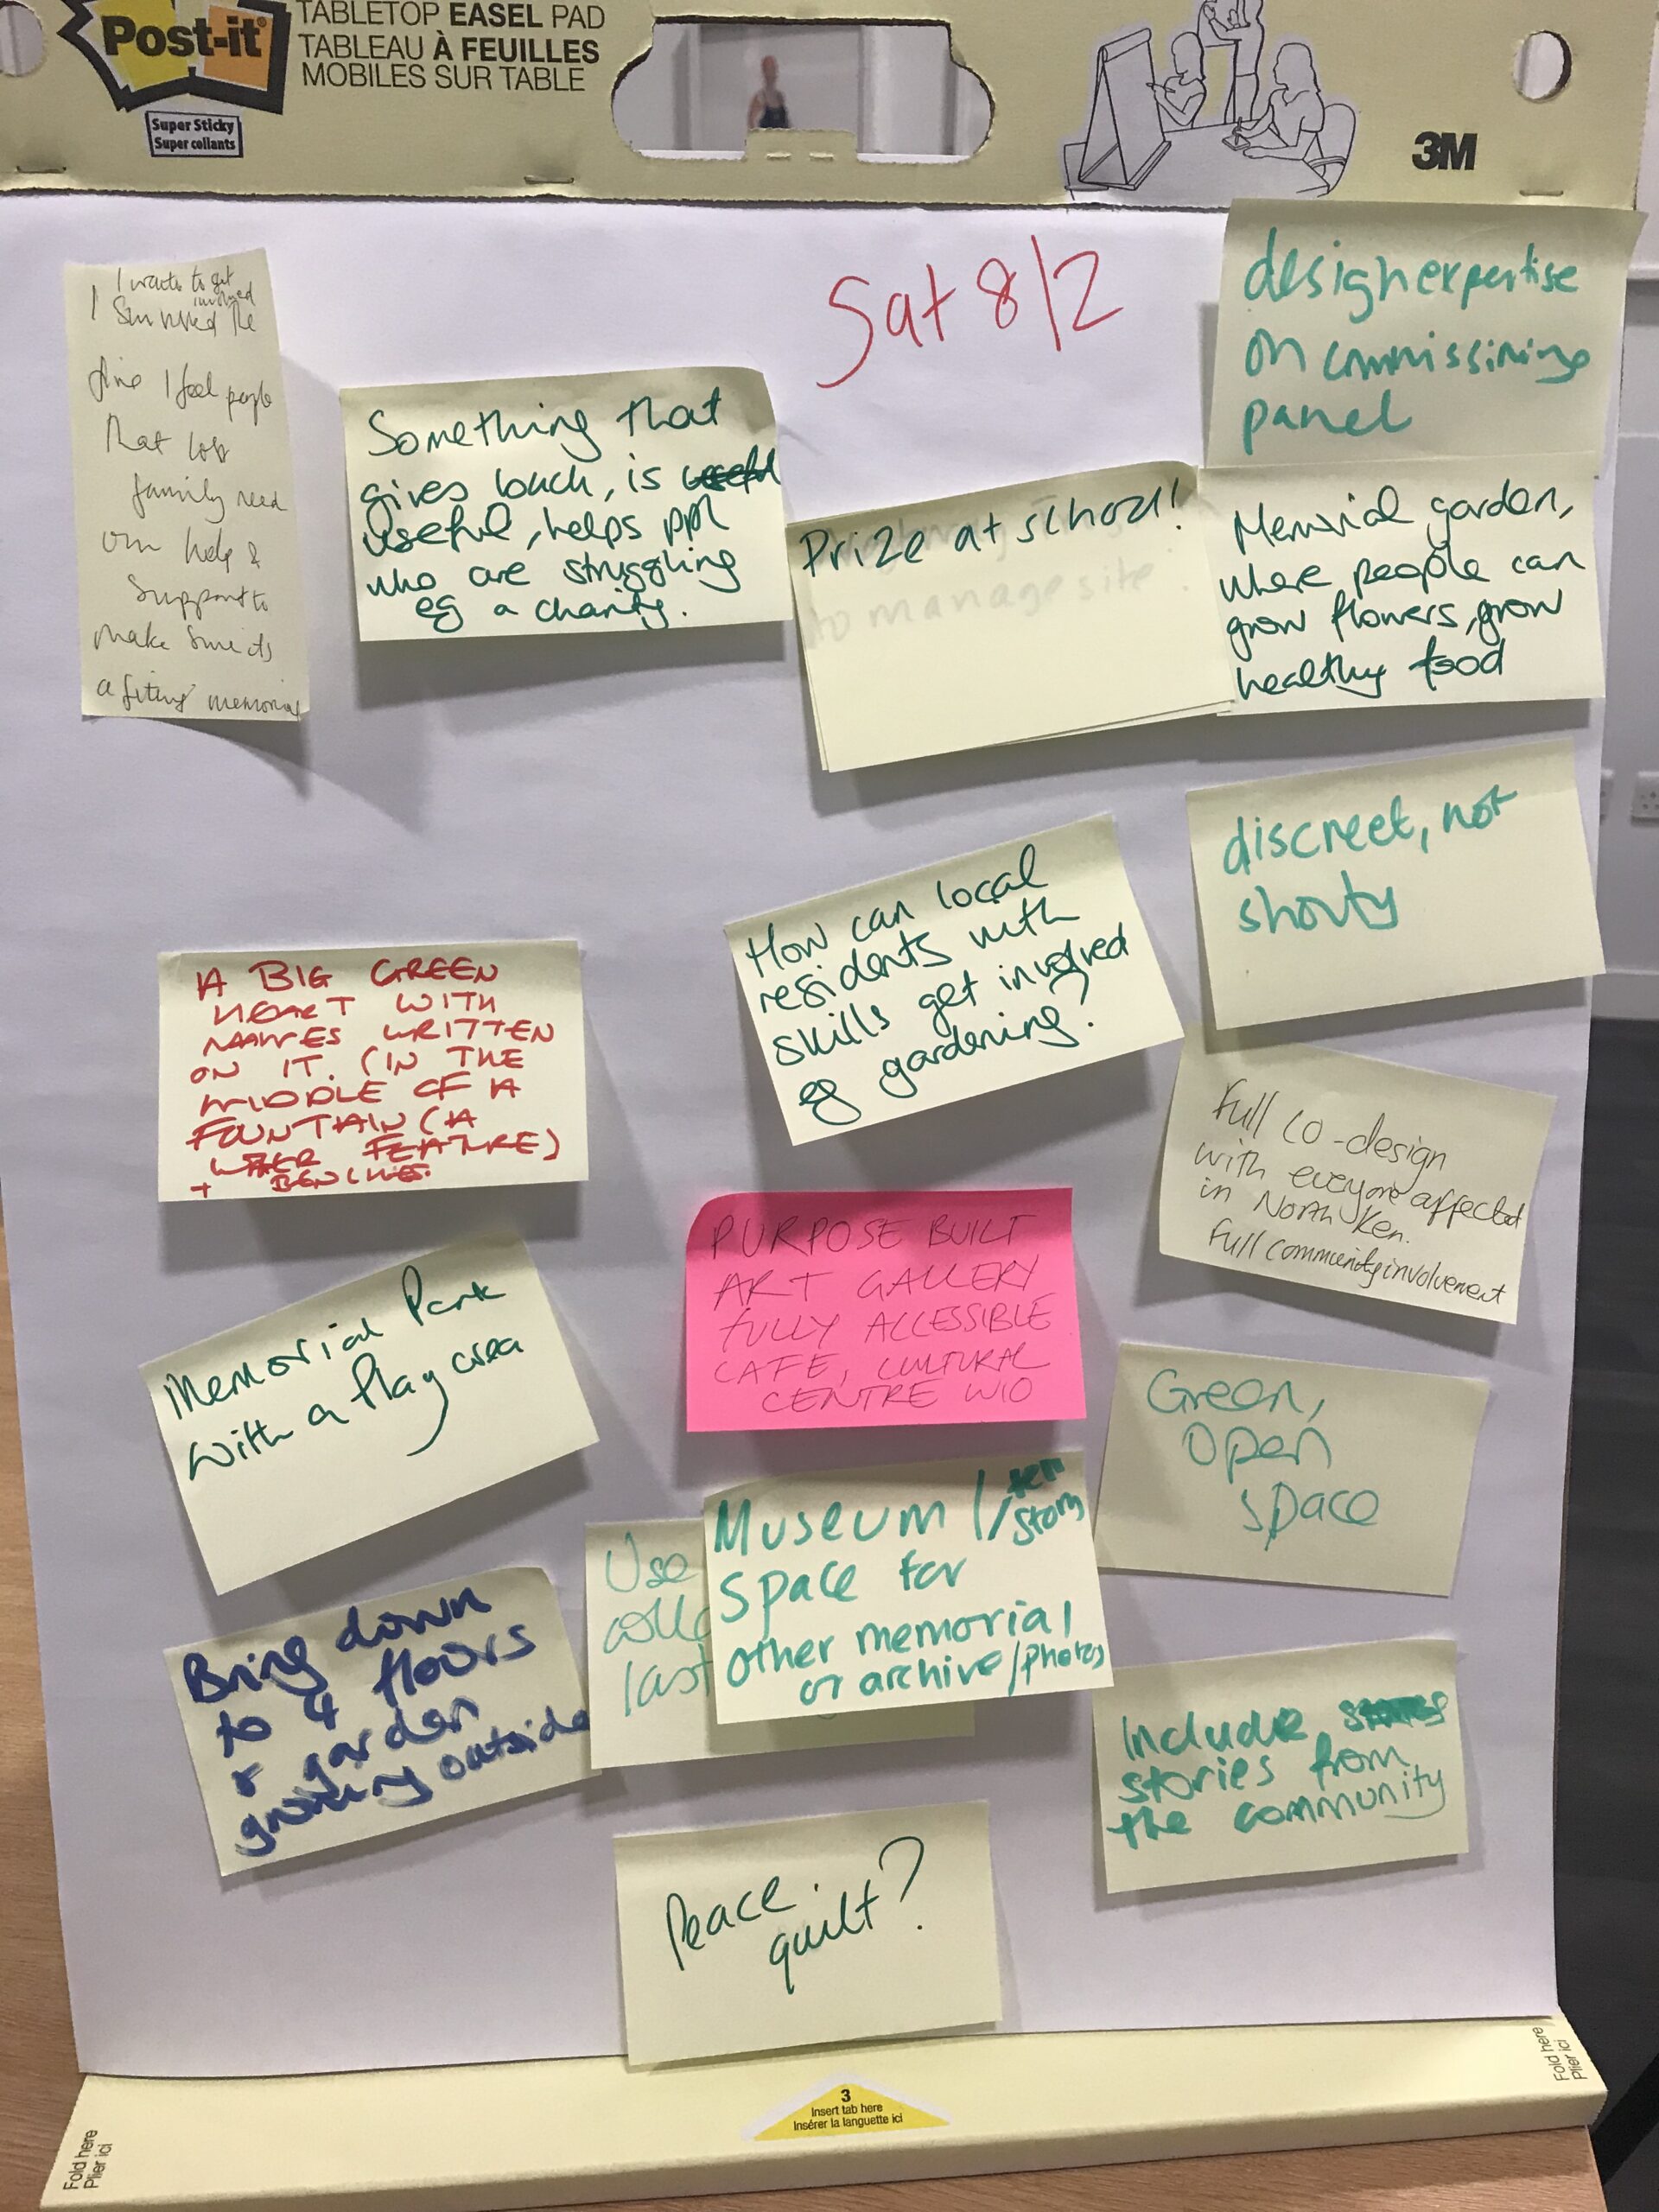 Post-it
Super Sticky
Super collants
TABLETOP EASEL PAD
TABLEAU À FEUILLES
MOBILES SUR TABLE
3M
Sat 8/2
I want to get
involved
I survived the
fire I feel people
that lost
family need
our help &
support to
make sure its
a fiting memorial
Something that
gives back, is useful
useful, helps ppl
who are struggling
eg a charity.
Prize at school!
to manage site
design expertise
on commissining
panel
Memorial garden,
where people can
grow flowers, grow
healthy food
discreet, not
shouty
How can local
residents with
skills get involved
eg gardening?
A BIG GREEN
HEART WITH
NAMES WRITTEN
ON IT. (IN THE
MIDDLE OF A
FOUNTAIN (A
WATER FEATURE)
+ BENCHES.
Full co-design
with everyone affected
in North Ken.
Full community involvement
PURPOSE BUILT
ART GALLERY
FULLY ACCESSIBLE
CAFE, CULTURAL
CENTRE W10
Memorial Park
with a play area
Green,
open
space
Use
last
Museum /
story
space for
other memorial
or archive/photos
Bring down
to 4 floors
garden
growing outside
Include
stories from
the community
Peace
quilt?
3
Insert tab here
Insérer la languette ici
Fold here
Plier ici
Fold here
Plier ici